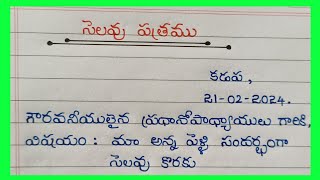 సెలవు పత్రము
కడప,
21-02-2024.
గౌరవనీయులైన ప్రధానోపాధ్యాయులు గారికి,
విషయం : మా అన్న పెళ్ళి సందర్భంగా
సెలవు కొరకు